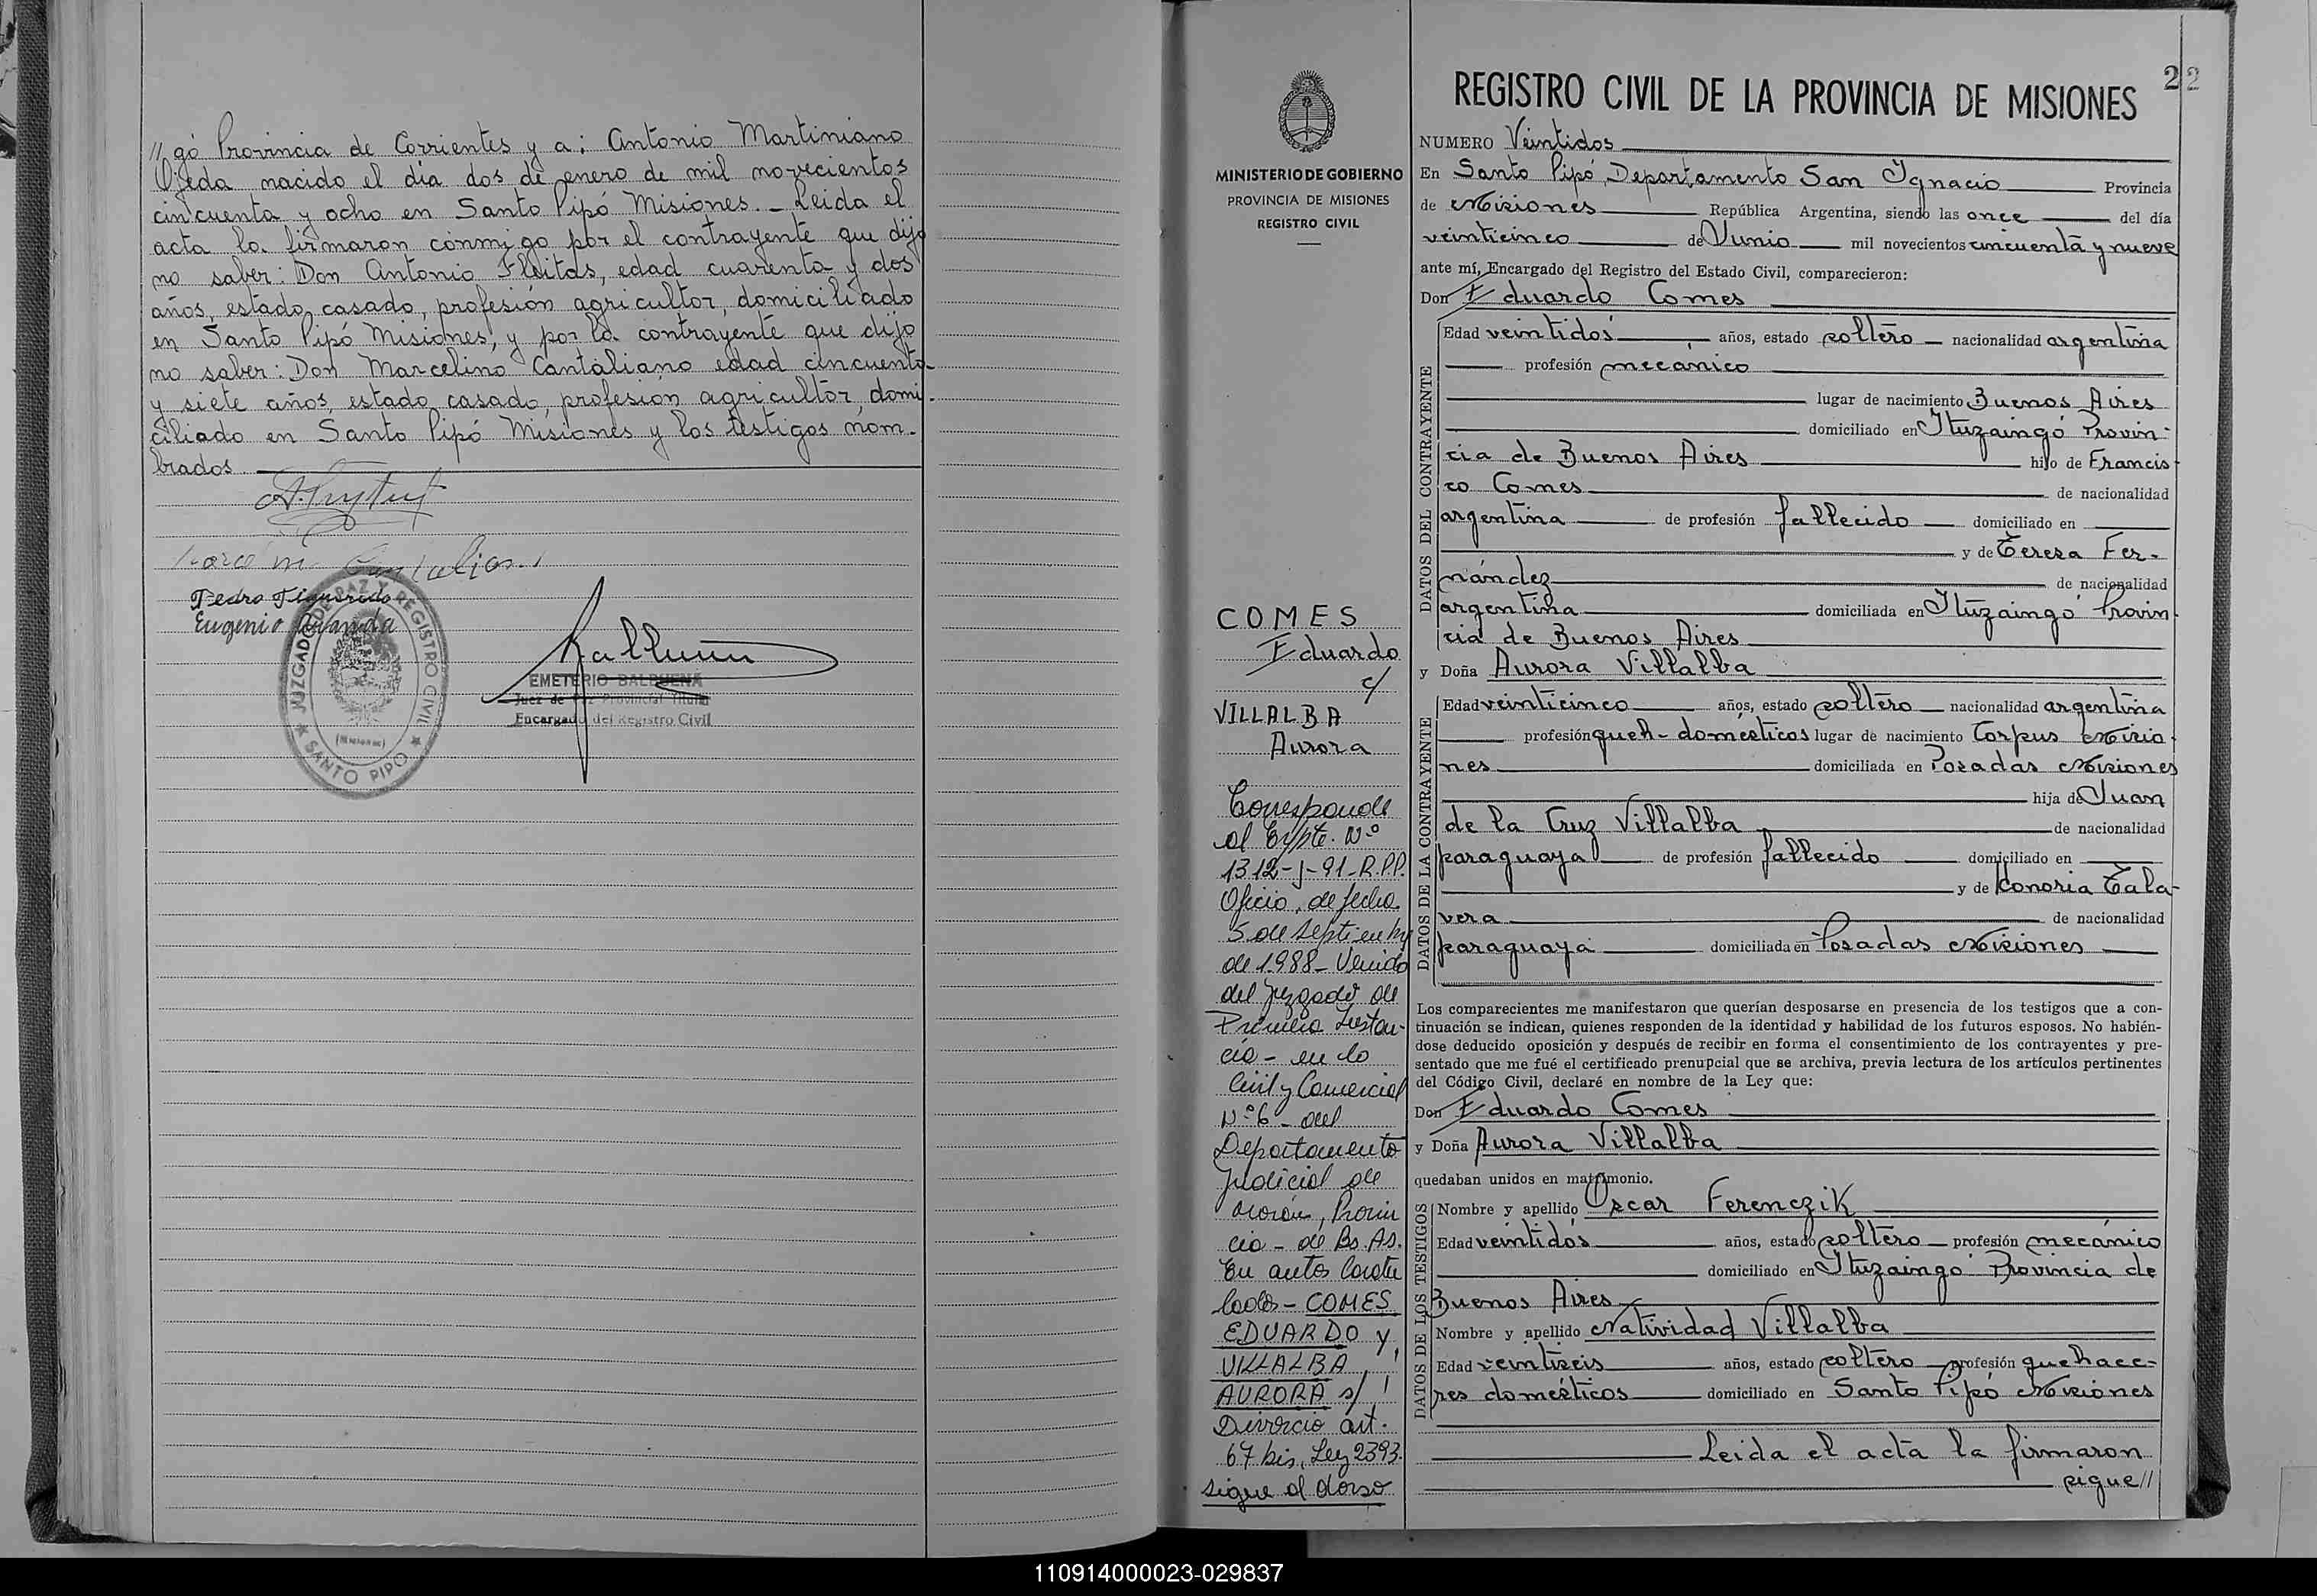 // gó Provincia de Corrientes y a: Antonio Martiniano
Ojeda nacido el día dos de enero de mil novecientos
cincuenta y ocho en Santo Pipó Misiones. - Leida el
acta la firmaron conmigo por el contrayente que dijo
no saber: Don Antonio Fleitas, edad cuarenta y dos
años, estado casado, profesión agricultor, domiciliado
en Santo Pipó Misiones, y por la contrayente que dijo
no saber: Don Marcelino Cantaliano edad cincuenta
y siete años, estado casado, profesión agricultor, domi-
ciliado en Santo Pipó Misiones y los testigos nom-
brados
Pedro Figueredo
Eugenio Miranda
JUZGADO DE PAZ Y REGISTRO CIVIL
(Misiones)
SANTO PIPO
EMETERIO BALBUENA
Juez de Paz Provincial Titular
Encargado del Registro Civil
MINISTERIO DE GOBIERNO
PROVINCIA DE MISIONES
REGISTRO CIVIL
COMES
Eduardo
c/
VILLALBA
Aurora
Corresponde
al Expte. Nº
1312-J-91-R.P.P.
Oficio, de fecha
5 de septiembre
de 1988- Venido
del Juzgado de
Primera Instan-
cia - en lo
Civil y Comercial
Nº 6 - del
Departamento
Judicial de
Morón, Provin
cia - de Bs. As.
En autos Caratu
lados - COMES
EDUARDO y
VILLALBA
AURORA s/
Divorcio art.
67 bis, Ley 2393.
sigue al dorso
22
REGISTRO CIVIL DE LA PROVINCIA DE MISIONES
NUMERO Veintidos
En Santo Pipó, Departamento San Ignacio Provincia
de Misiones República Argentina, siendo las once del día
veinticinco de Junio mil novecientos cincuenta y nueve
ante mí, Encargado del Registro del Estado Civil, comparecieron:
Don Eduardo Comes
DATOS DEL CONTRAYENTE
Edad veintidos años, estado soltero nacionalidad argentina
profesión mecánico
lugar de nacimiento Buenos Aires
domiciliado en Ituzaingó Provin-
cia de Buenos Aires hijo de Francis-
co Comes de nacionalidad
argentina de profesión fallecido domiciliado en
y de Teresa Fer-
nández de nacionalidad
argentina domiciliada en Ituzaingó Provin-
cia de Buenos Aires
y Doña Aurora Villalba
DATOS DE LA CONTRAYENTE
Edad veinticinco años, estado soltero nacionalidad argentina
profesión queh- domésticos lugar de nacimiento Corpus Misio-
nes domiciliada en Posadas Misiones
hija de Juan
de la Cruz Villalba de nacionalidad
paraguaya de profesión fallecido domiciliado en
y de Honoria Tala-
vera de nacionalidad
paraguaya domiciliada en Posadas Misiones
Los comparecientes me manifestaron que querían desposarse en presencia de los testigos que a con-
tinuación se indican, quienes responden de la identidad y habilidad de los futuros esposos. No habién-
dose deducido oposición y después de recibir en forma el consentimiento de los contrayentes y pre-
sentado que me fué el certificado prenupcial que se archiva, previa lectura de los artículos pertinentes
del Código Civil, declaré en nombre de la Ley que:
Don Eduardo Comes
y Doña Aurora Villalba
quedaban unidos en matrimonio.
DATOS DE LOS TESTIGOS
Nombre y apellido Oscar Ferenczik
Edad veintidós años, estado soltero profesión mecánico
domiciliado en Ituzaingó Provincia de
Buenos Aires
Nombre y apellido Natividad Villalba
Edad veintiseis años, estado soltero profesión quehace-
res domésticos domiciliado en Santo Pipó Misiones
Leida el acta la firmaron
sigue//
110914000023-029837